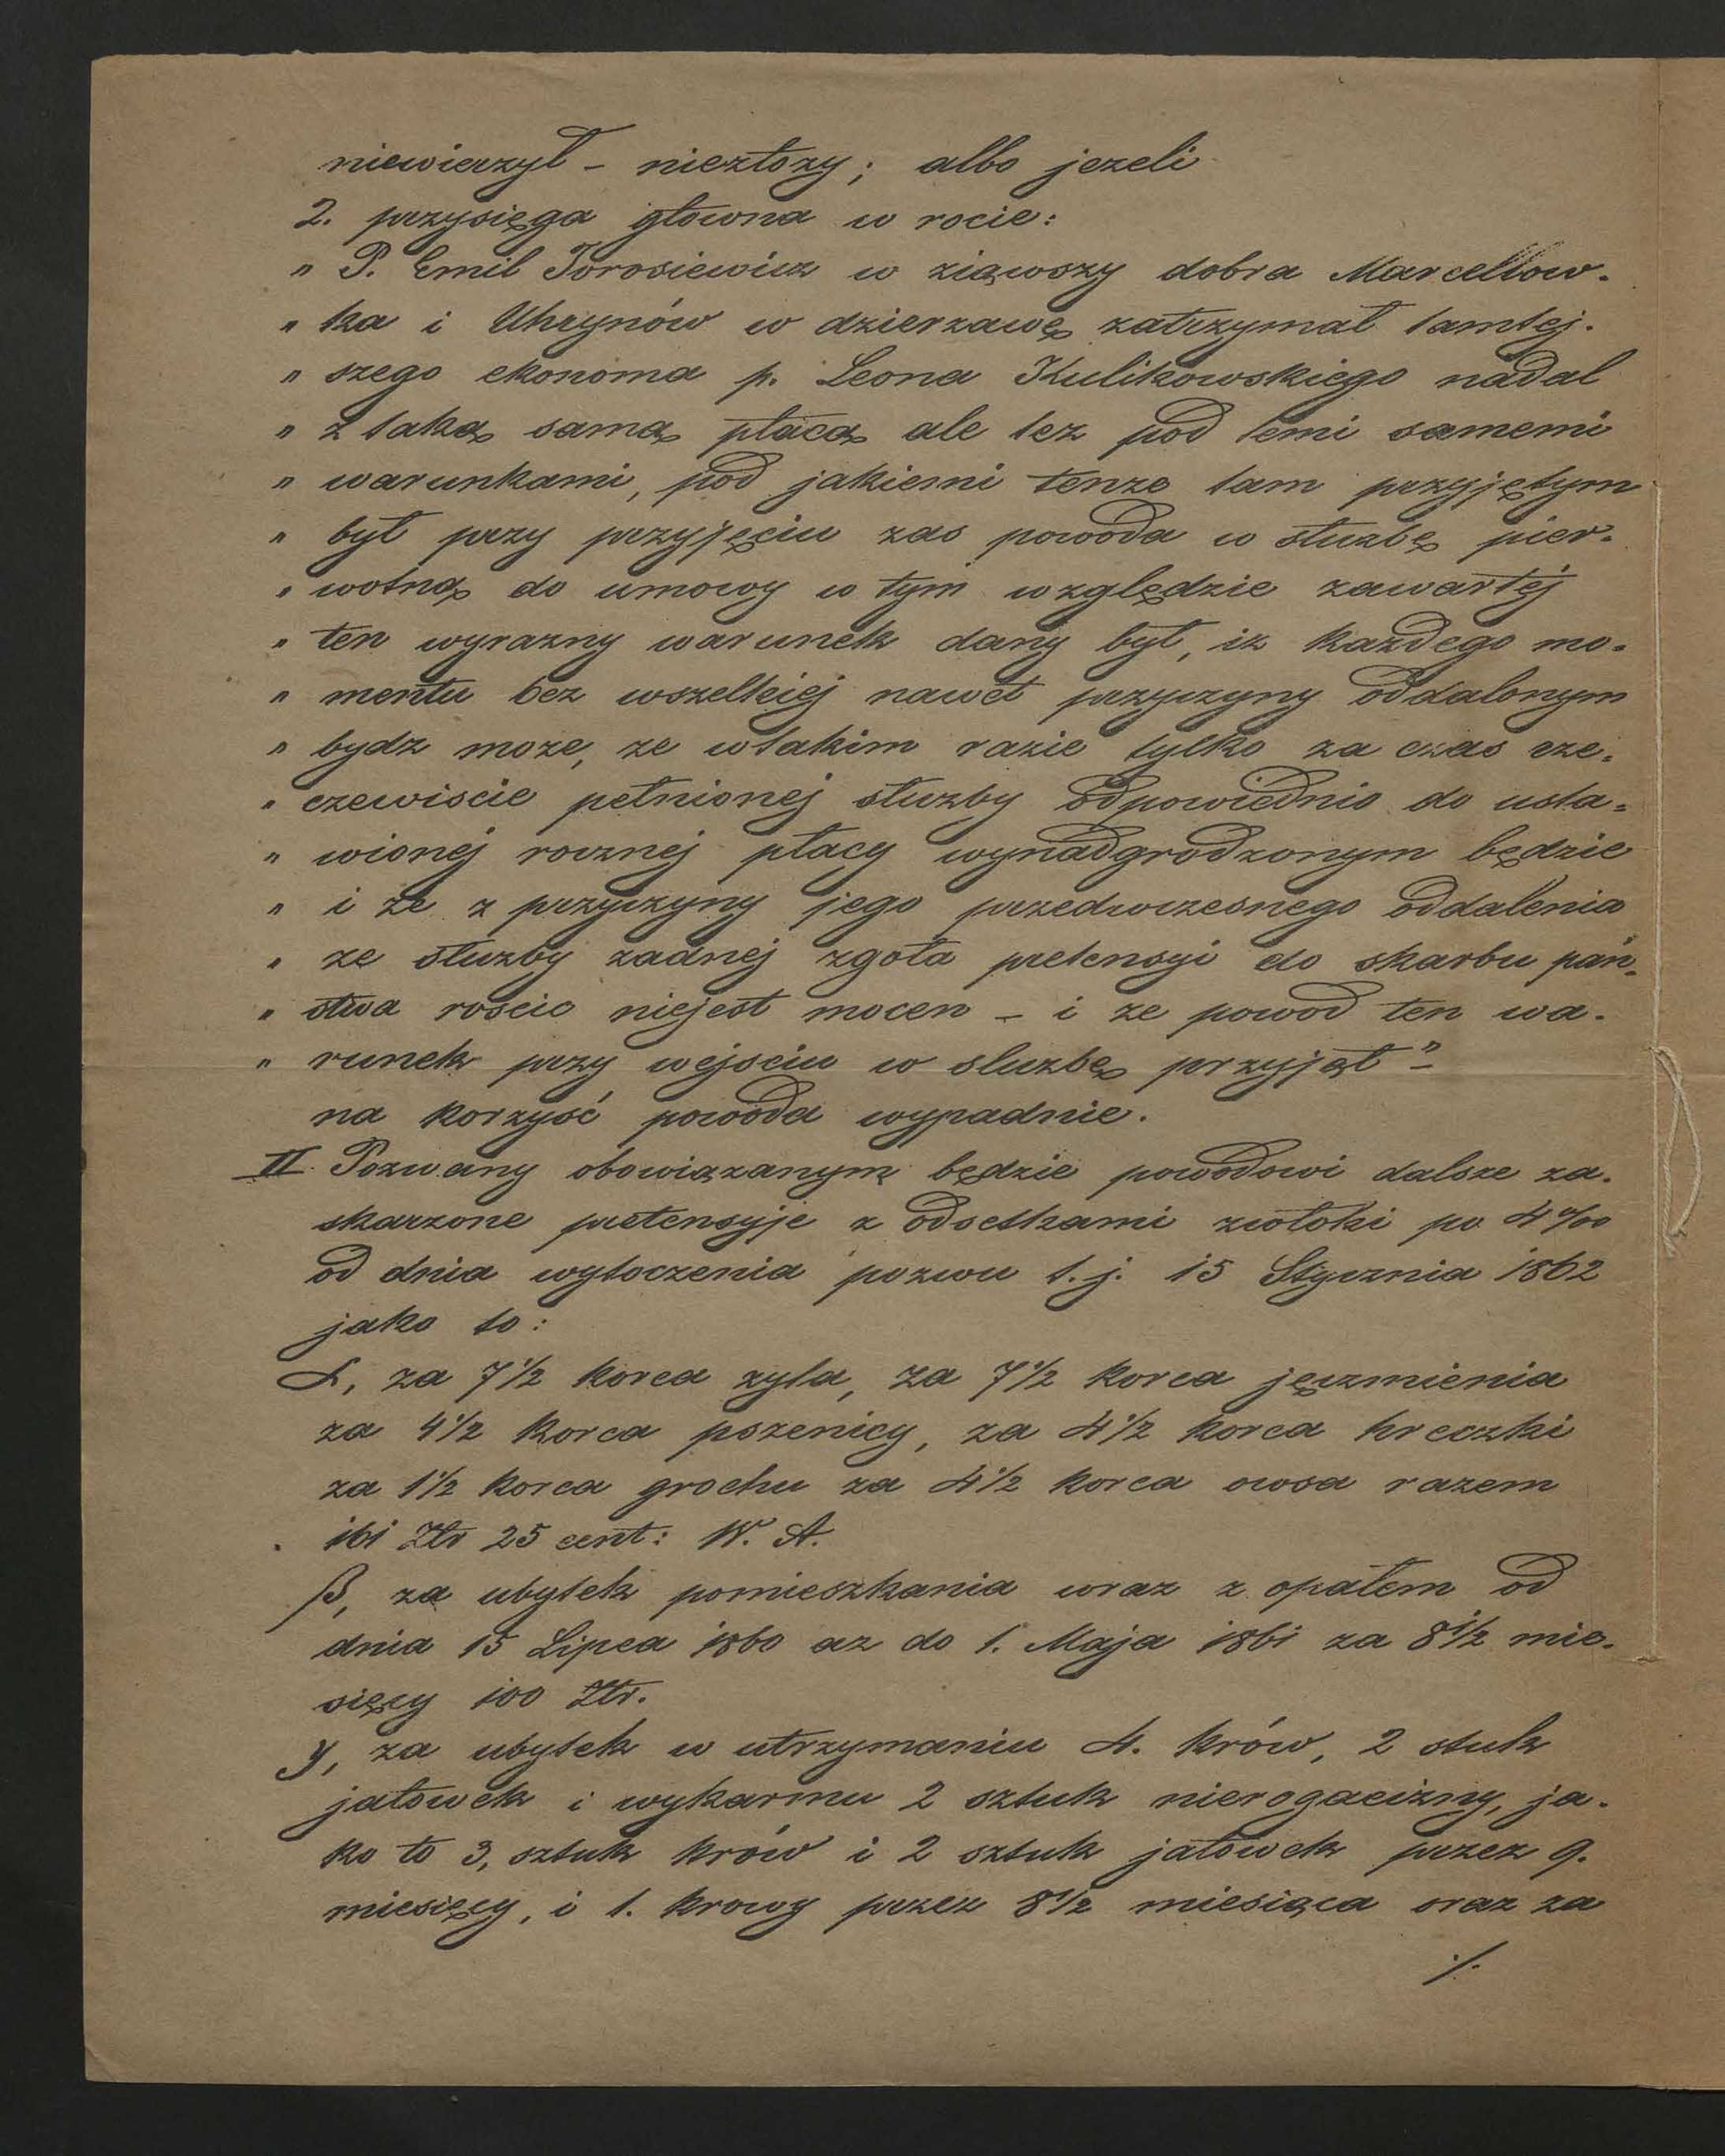 niewierzył – niezłozy; albo jezeli
2. przysięga głowna w rocie:
" P. Emil Torosiewicz w ziąwszy dobra Marcellow-
" ka i Uhrynów w dzierzawę zatrzymał tamtej-
" szego ekonoma p. Leona Kulikowskiego nadal
" z taką samą płacą ale tez pod temi samemi
" warunkami, pod jakiemi tenze tam przyjętym
" był przy przyjęciu zas powoda w służbę pier-
" wotną do umowy w tym względzie zawartéj
" ten wyrazny warunek dany był, iz kazdego mo-
" mentu bez wszelkiej nawet przyczyny oddalonym
" bydz moze, ze wtakim razie tylko za czas rze-
" czewiscie pełnionéj słuzby odpowiednio do usta-
" wionéj rocznéj płacy wynadgrodzonym będzie
" i ze z przyczyny jego przedwczesnego oddalenia
" ze słuzby zadnéj zgoła pretensyi do skarbu pań-
" stwa roscic niejest mocen – i ze powod ten wa-
" runek przy wejsciu w sluzbę przyjął" –
na korzyść powoda wypadnie.
II. Pozwany obowiązanym będzie powodowi dalsze za-
skarzone pretensyje z odsetkami zwłoki po 4%
od dnia wytoczenia pozwu t. j. 15 Stycznia 1862
jako to:
α, za 7 1/2 korca zyta, za 7 1/2 korca jęczmienia
za 4 1/2 korca pszenicy, za 4 1/2 korca hreczki
za 1 1/2 korca grochu za 4 1/2 korca owsa razem
161 Złr 25 cent: W. A.
β, za ubytek pomieszkania wraz z opałem od
dnia 15 Lipca 1860 az do 1. Maja 1861 za 8 1/2 mie-
sięcy 100 Złr.
γ, za ubytek w utrzymaniu 4. krów, 2 stuk
jałowek i wykarmu 2 sztuk nierogacizny, ja-
ko to 3, sztuk krów i 2 sztuk jałowek przez 9.
miesięcy, i 1. krowy przez 8 1/2 miesiąca oraz za
./.